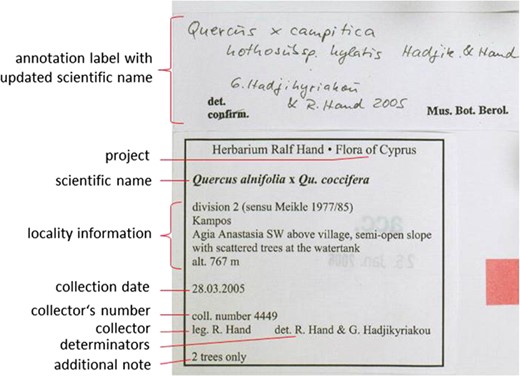 annotation label with
updated scientific name
Quercus x campitica
nothosubsp. hylatis Hadjik. & Hand
G. Hadjikyriakou
det.
& R. Hand 2005
confirm.
Mus. Bot. Berol.
project
Herbarium Ralf Hand • Flora of Cyprus
scientific name
Quercus alnifolia x Qu. coccifera
locality information
division 2 (sensu Meikle 1977/85)
Kampos
Agia Anastasia SW above village, semi-open slope
with scattered trees at the watertank
alt. 767 m
collection date
28.03.2005
collector's number
coll. number 4449
collector
leg. R. Hand det. R. Hand & G. Hadjikyriakou
determinators
additional note
2 trees only